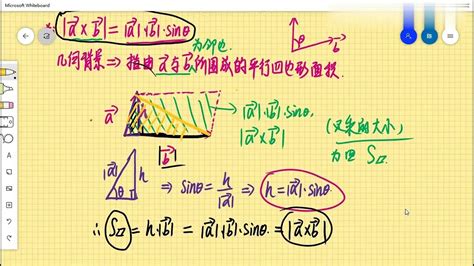 Microsoft Whiteboard
|a⃗×b⃗|=|a⃗|·|b⃗|·sinθ
θ b⃗
几何背景⇒指由a⃗与b⃗所围成的平行四边形面积.
为邻边
a⃗
|a⃗|·|b⃗|·sinθ.
|a⃗×b⃗|
|b⃗|
(叉乘的大小)
为四 S▱
|a⃗| h θ
⇒ sinθ=h/|a⃗| ⇒ h=|a⃗|·sinθ.
∴ S▱=h·|b⃗|=|a⃗|·|b⃗|·sinθ.=|a⃗×b⃗|